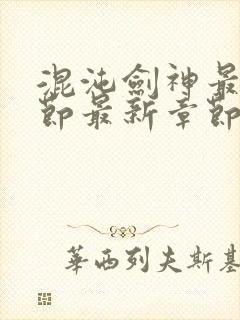 混沌劍神最
節最新章節
華西列夫斯基